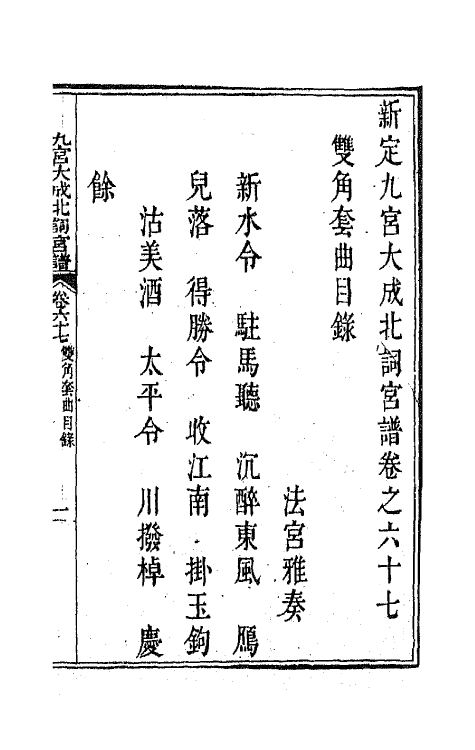 新定九宮大成北詞宮譜卷之六十七
雙角套曲目錄
法宮雅奏
新水令 駐馬聽 沉醉東風 鴈
兒落 得勝令 收江南 掛玉鉤
沽美酒 太平令 川撥棹 慶
餘
九宮大成北詞宮譜 卷六十七 雙角套曲目錄 一